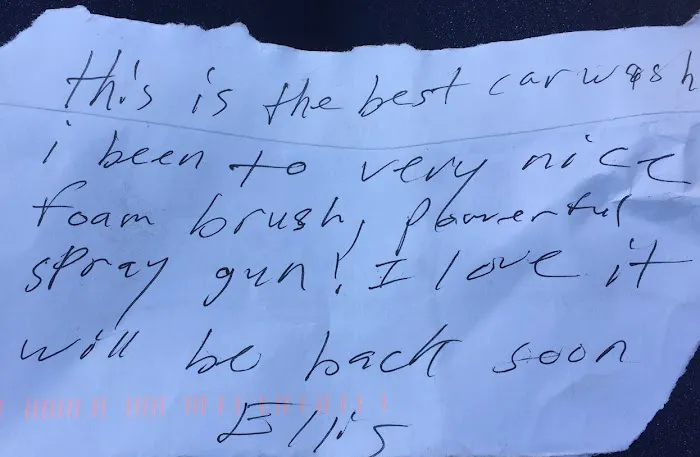 this is the best carwash
i been to very nice
foam brush, powerful
spray gun! I love it
will be back soon
Ellis